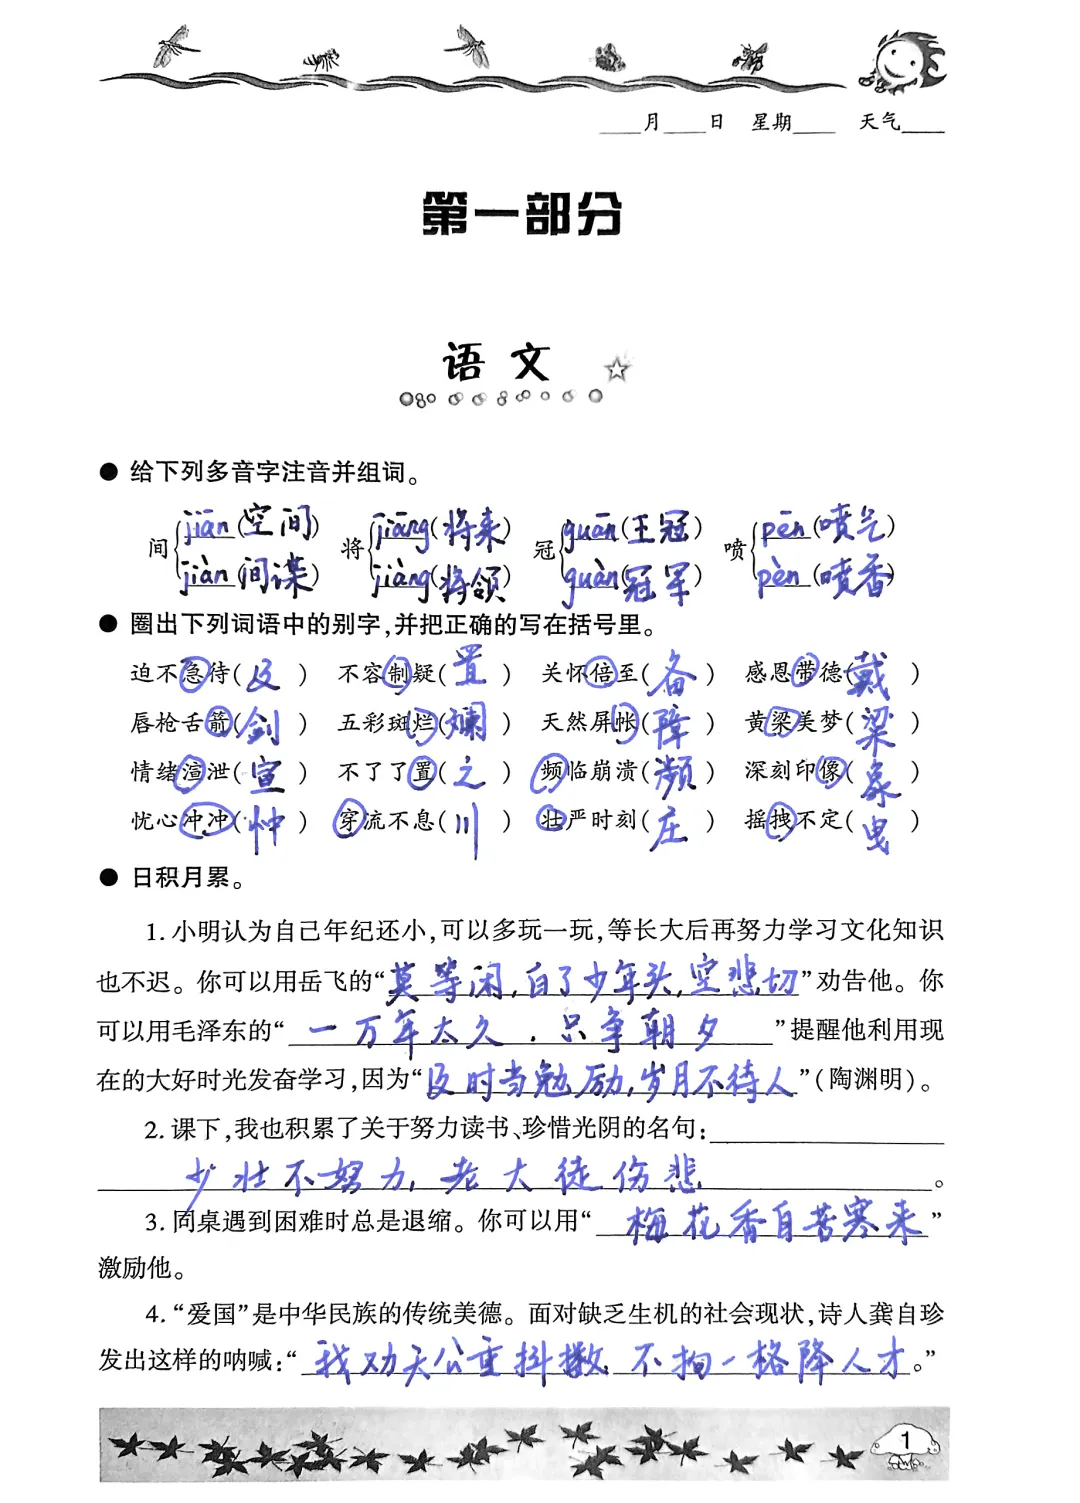 ____月____日 星期____ 天气____
第一部分
语文
● 给下列多音字注音并组词。
间 jiān(空间) 将 jiāng(将来) 冠 guān(王冠) 喷 pēn(喷气)
jiàn(间谍) jiàng(将领) guàn(冠军) pèn(喷香)
● 圈出下列词语中的别字,并把正确的写在括号里。
迫不急待(及) 不容制疑(置) 关怀倍至(备) 感恩带德(戴)
唇枪舌箭(剑) 五彩斑烂(斓) 天然屏帐(障) 黄梁美梦(粱)
情绪渲泄(宣) 不了了置(之) 频临崩溃(濒) 深刻印像(象)
忧心冲冲(忡) 穿流不息(川) 壮严时刻(庄) 摇拽不定(曳)
● 日积月累。
1.小明认为自己年纪还小,可以多玩一玩,等长大后再努力学习文化知识
也不迟。你可以用岳飞的“莫等闲,白了少年头,空悲切”劝告他。你
可以用毛泽东的“一万年太久,只争朝夕”提醒他利用现
在的大好时光发奋学习,因为“及时当勉励,岁月不待人”(陶渊明)。
2.课下,我也积累了关于努力读书、珍惜光阴的名句:
少壮不努力,老大徒伤悲。
3.同桌遇到困难时总是退缩。你可以用“梅花香自苦寒来”
激励他。
4.“爱国”是中华民族的传统美德。面对缺乏生机的社会现状,诗人龚自珍
发出这样的呐喊:“我劝天公重抖擞,不拘一格降人才。”
1